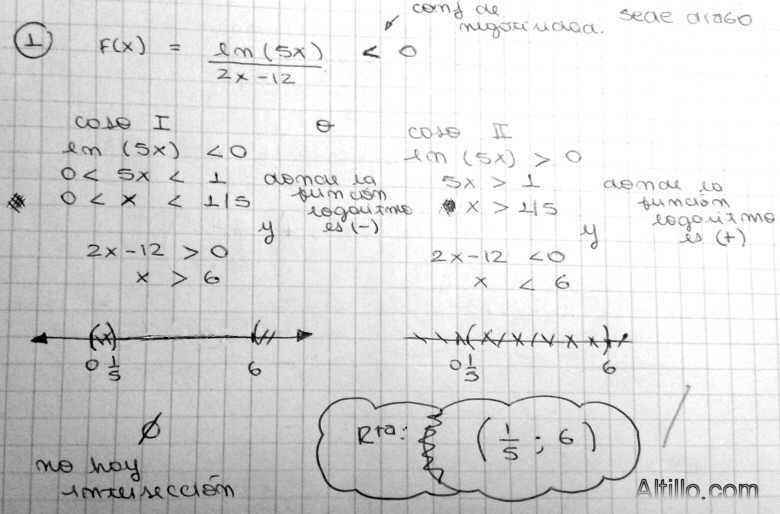 conj de
negatividad.
sede drago
1 F(x) = ln (5x) / 2x-12 < 0
caso I
o
caso II
ln (5x) < 0
ln (5x) > 0
0 < 5x < 1 donde la
función
logaritmo
es (-)
0 < x < 1/5
y
5x > 1 donde la
función
logaritmo
es (+)
x > 1/5
y
2x-12 > 0
x > 6
2x-12 < 0
x < 6
0 1/5 6
0 1/5 6
∅
no hay
intersección
Rta: (1/5 ; 6)
Altillo.com